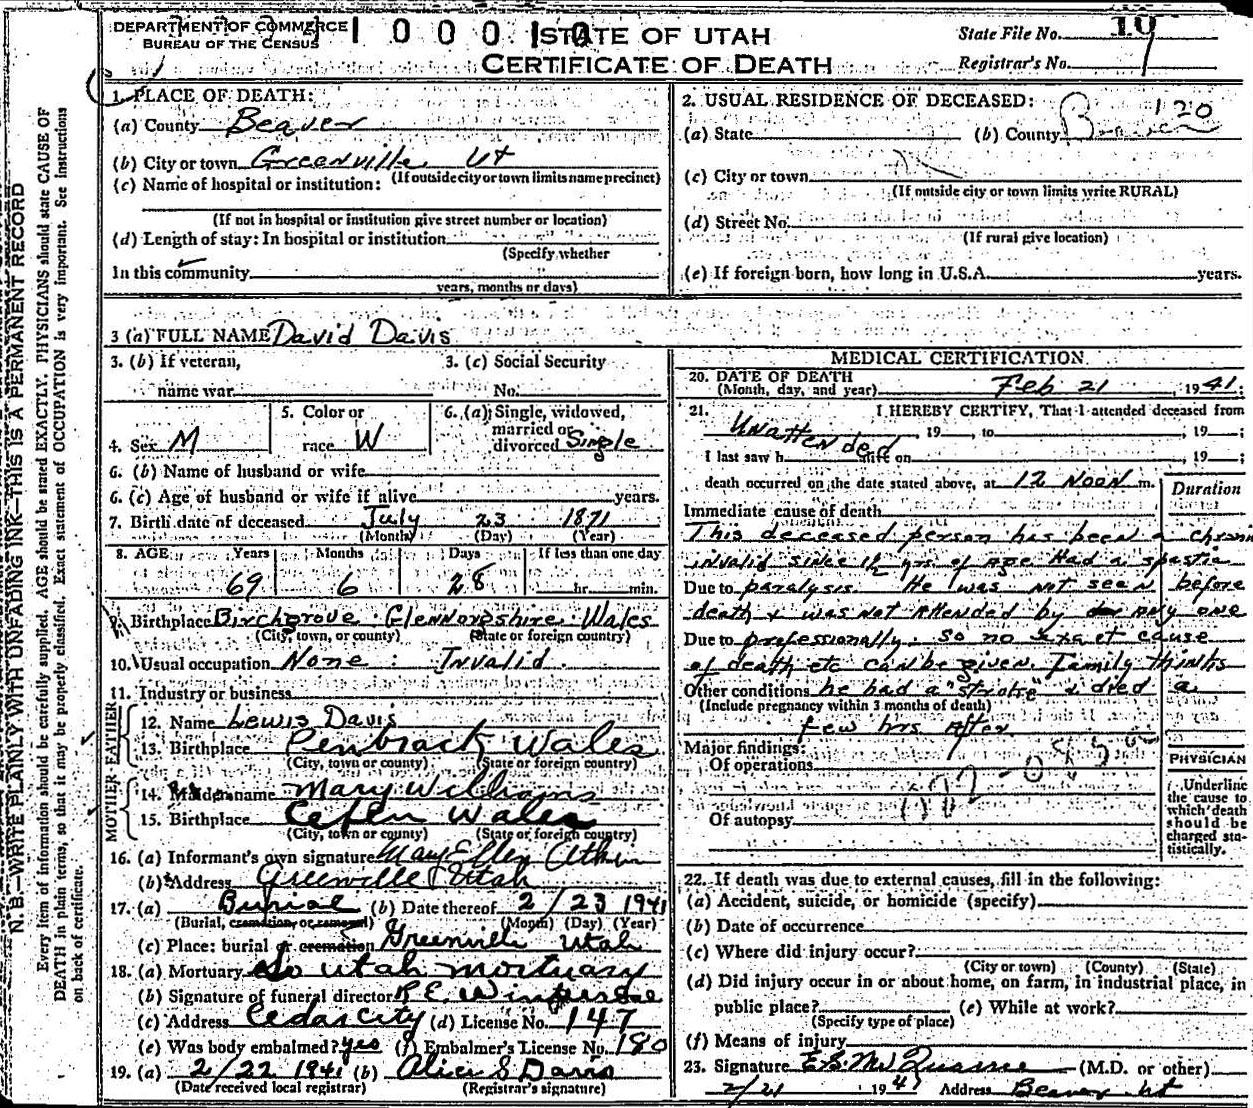 DEPARTMENT OF COMMERCE
BUREAU OF THE CENSUS
1 0 0 0 1 0
STATE OF UTAH
CERTIFICATE OF DEATH
State File No. 10
Registrar's No.
N. B.—WRITE PLAINLY WITH UNFADING INK—THIS IS A PERMANENT RECORD
Every item of information should be carefully supplied. AGE should be stated EXACTLY. PHYSICIANS should state CAUSE OF
DEATH in plain terms, so that it may be properly classified. Exact statement of OCCUPATION is very important. See instructions
on back of certificate.
1. PLACE OF DEATH:
(a) County Beaver
(b) City or town Greenville Ut
(If outside city or town limits name precinct)
(c) Name of hospital or institution:
(If not in hospital or institution give street number or location)
(d) Length of stay: In hospital or institution
(Specify whether
In this community
years, months or days)
2. USUAL RESIDENCE OF DECEASED: 120
(a) State (b) County Beaver
(c) City or town
(If outside city or town limits write RURAL)
(d) Street No.
(If rural give location)
(e) If foreign born, how long in U.S.A. years.
3 (a) FULL NAME David Davis
3. (b) If veteran,
name war
3. (c) Social Security
No.
4. Sex M
5. Color or
race W
6. (a) Single, widowed,
married or
divorced Single
6. (b) Name of husband or wife
6. (c) Age of husband or wife if alive years.
7. Birth date of deceased July 23 1871
(Month) (Day) (Year)
8. AGE Years Months Days If less than one day
69 6 28 hr. min.
9. Birthplace Birchgrove: Glennorpshire: Wales
(City, town, or county) (State or foreign country)
10. Usual occupation None: Invalid.
11. Industry or business
FATHER
12. Name Lewis Davis
13. Birthplace Penbrack Wales
(City, town or county) (State or foreign country)
MOTHER
14. Maiden name Mary Williams
15. Birthplace Cefen Wales
(City, town or county) (State or foreign country)
16. (a) Informant's own signature Mary Ellen Atkin
(b) Address Greenville Utah
17. (a) Burial (b) Date thereof 2/23 1941
(Burial, cremation, or removal) (Month) (Day) (Year)
(c) Place: burial or cremation Greenville Utah
18. (a) Mortuary So Utah Mortuary
(b) Signature of funeral director R. E.
(c) Address Cedar City (d) License No. 147
(e) Was body embalmed? yes (f) Embalmer's License No. 180
19. (a) 2/22 1941 (b) Alice S Davis
(Date received local registrar) (Registrar's signature)
MEDICAL CERTIFICATION
20. DATE OF DEATH
(Month, day, and year) Feb 21, 1941;
21. I HEREBY CERTIFY, That I attended deceased from
Unattended, 19 , to , 19 ;
I last saw h alive on , 19 ;
death occurred on the date stated above, at 12 Noon m.
Duration
Immediate cause of death
This deceased person has been a chronic
invalid since 1½ yrs of age. Had a spastic
Due to paralysis. He was not seen before
death & was not attended by any one
Due to professionally. So no exact cause
of death etc can be given. Family thinks
Other conditions he had a "stroke" & died a
(Include pregnancy within 3 months of death)
few hrs after.
Major findings:
Of operations
Of autopsy
PHYSICIAN
Underline
the cause to
which death
should be
charged sta-
tistically.
22. If death was due to external causes, fill in the following:
(a) Accident, suicide, or homicide (specify)
(b) Date of occurrence
(c) Where did injury occur?
(City or town) (County) (State)
(d) Did injury occur in or about home, on farm, in industrial place, in
public place? (e) While at work?
(Specify type of place)
(f) Means of injury
23. Signature E. S. McQuarrie (M.D. or other)
2/21 1941 Address Beaver Ut